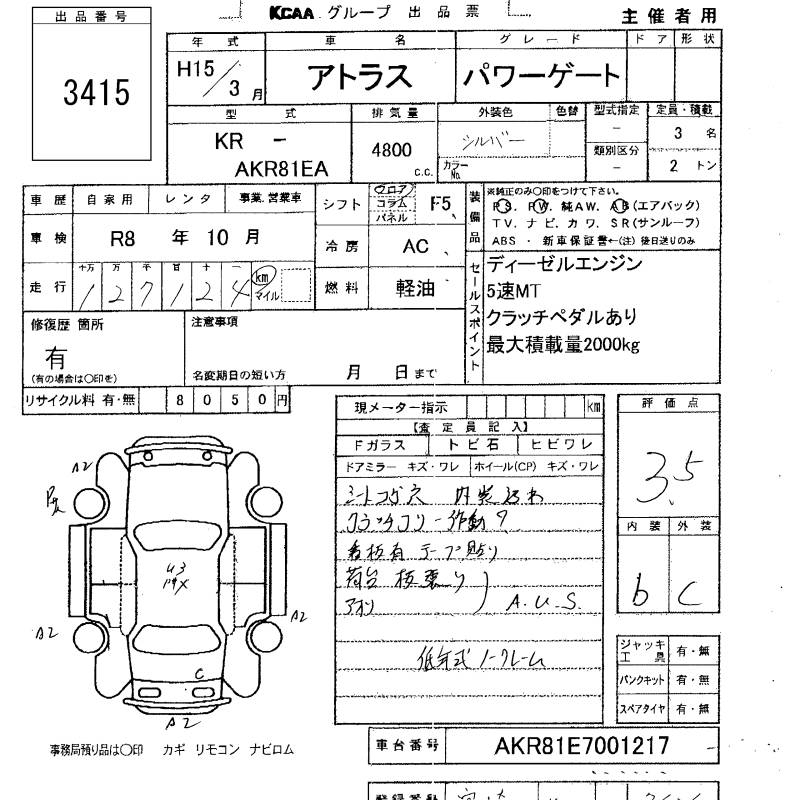 KCAA グループ 出品票
主催者用
出品番号
3415
年式 車名 グレード ドア 形状
H15/3月 アトラス パワーゲート
型式 排気量 外装色 色替 型式指定 定員・積載
KR - AKR81EA 4800 c.c. シルバー カラーNo. - 類別区分 - 3名 2トン
車歴 自家用 レンタ 事業.営業車
車検 R8 年 10 月
走行 十万 万 千 百 十 一
1 2 7 1 2 4 km マイル
シフト フロア コラム パネル F5
冷房 AC
燃料 軽油
装備品 ※純正のみ〇印をつけて下さい。
PS. PW. 純AW. AB(エアバック)
TV. ナビ. カワ. SR(サンルーフ)
ABS ・ 新車保証書←(注)後日送りのみ
セールスポイント
ディーゼルエンジン
5速MT
クラッチペダルあり
最大積載量2000kg
修復歴 箇所
有
(有の場合は〇印を)
注意事項
名変期日の短い方 月 日まで
リサイクル料 有・無 8050円
現メーター指示 km
【査定員記入】
Fガラス トビ石 ヒビワレ
ドアミラー キズ・ワレ ホイール(CP) キズ・ワレ
シートコゲ穴
看板有 テープ貼り
荷台 板張り
アオリ A.U.S.
低年式 ノークレーム
評価点
3.5
内装 外装
b C
ジャッキ 工具 有・無
パンクキット 有・無
スペアタイヤ 有・無
A2
A2
A2
C
A2
事務局預り品は〇印 カギ リモコン ナビロム
車台番号 AKR81E7001217
登録番号